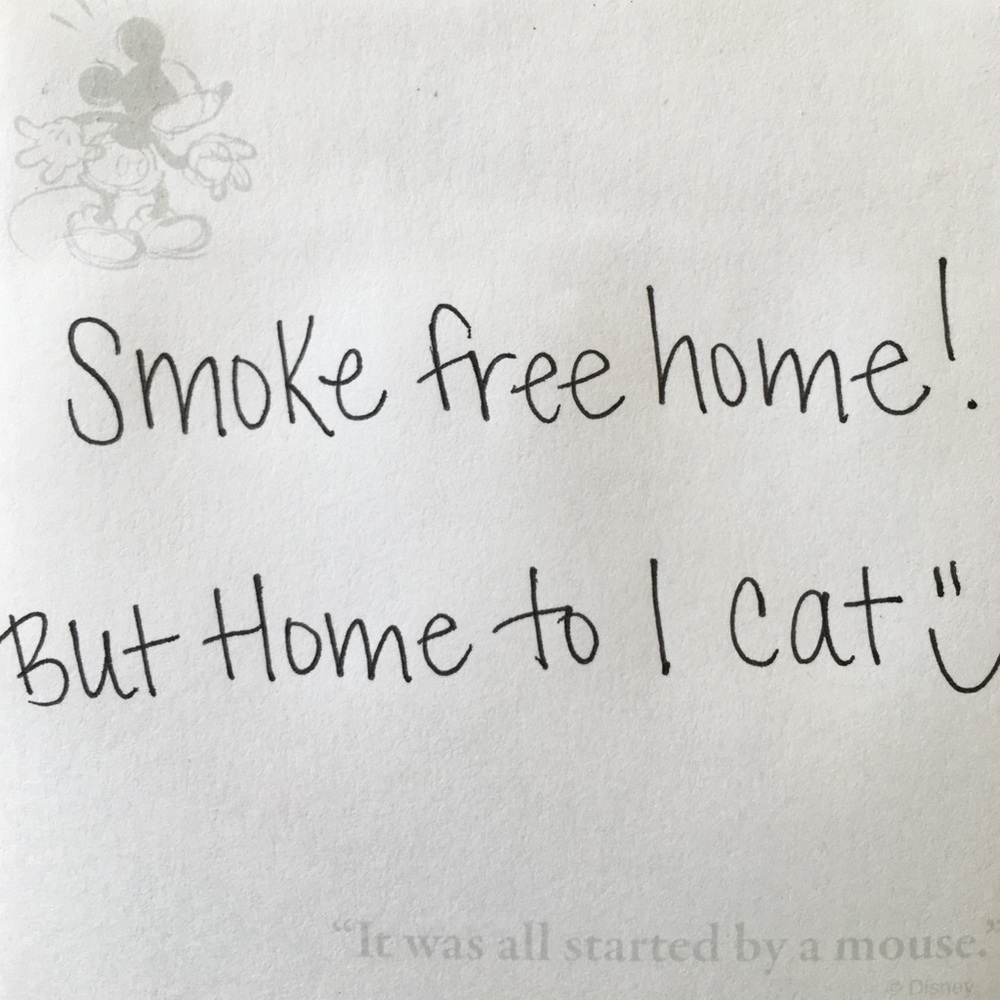 Smoke free home!
But Home to 1 cat
“It was all started by a mouse.”
© Disney